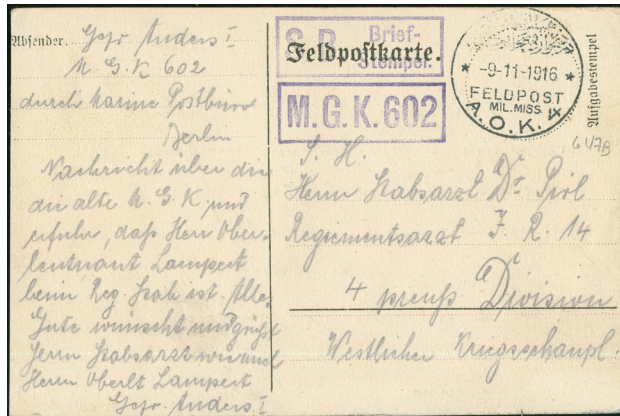 Absender. Gefr Anders I
M. G. K 602
durch Marine Postbüro
Berlin
Nachricht über die
die alte M. G. K. und
erfuhr, daß Herr Ober-
leutnant Lampert
beim Reg. Stab ist. Alles
Gute wünscht und grüßt
Herrn Stabsarzt wie auch
Herrn Oberlt Lampert
Gefr. Anders I
S. B. Brief-
Stempel.
Feldpostkarte.
M.G.K. 602
-9-11-1916
FELDPOST
MIL. MISS.
A.O.K. 4
Aufgabestempel
6 V7B
S. H.
Herrn Stabsarzt Dr Pirl
Regimentsarzt J. R. 14
4 preuß Division
Westlicher Kriegsschaupl.